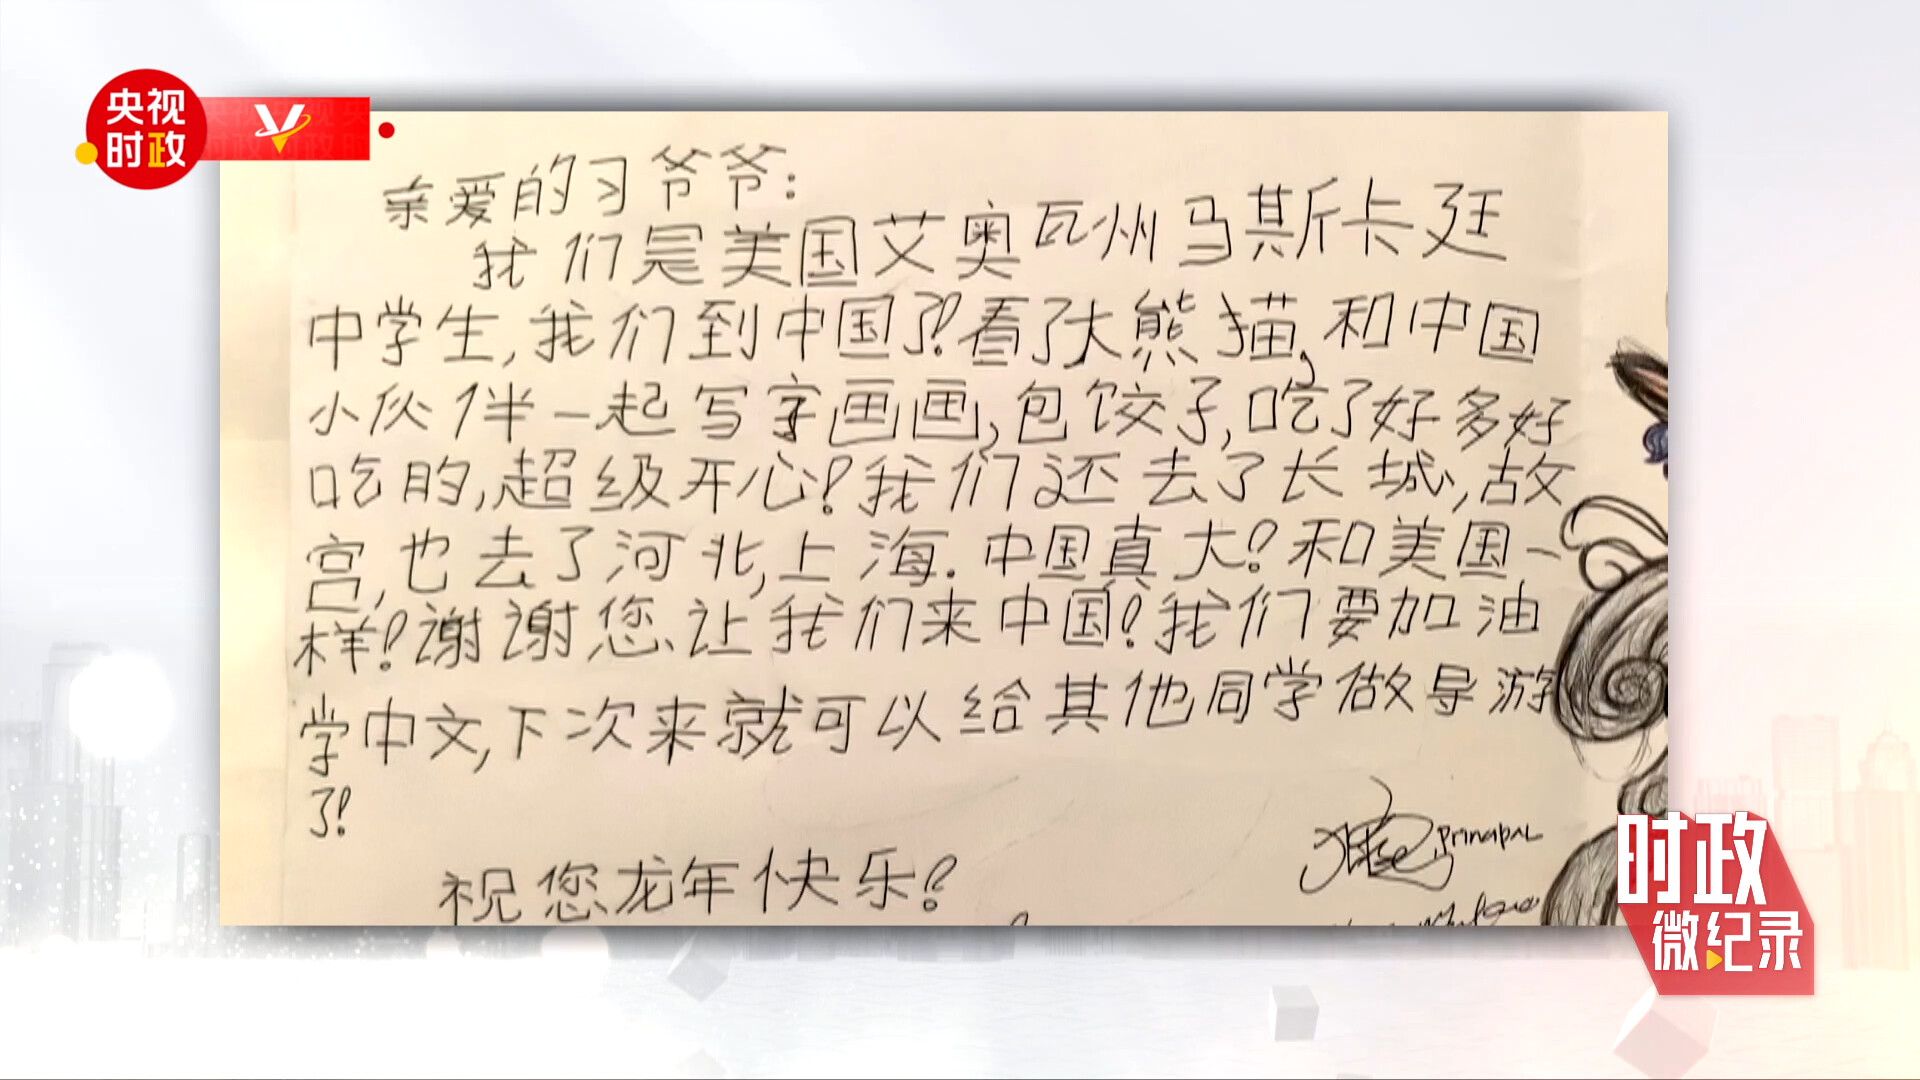 央视
时政
亲爱的习爷爷:
我们是美国艾奥瓦州马斯卡廷
中学生,我们到中国了!看了大熊猫,和中国
小伙伴一起写字画画,包饺子,吃了好多好
吃的,超级开心!我们还去了长城,故
宫,也去了河北,上海.中国真大!和美国一
样!谢谢您让我们来中国!我们要加油
学中文,下次来就可以给其他同学做导游
了!
Principal
祝您龙年快乐!
时政
微纪录